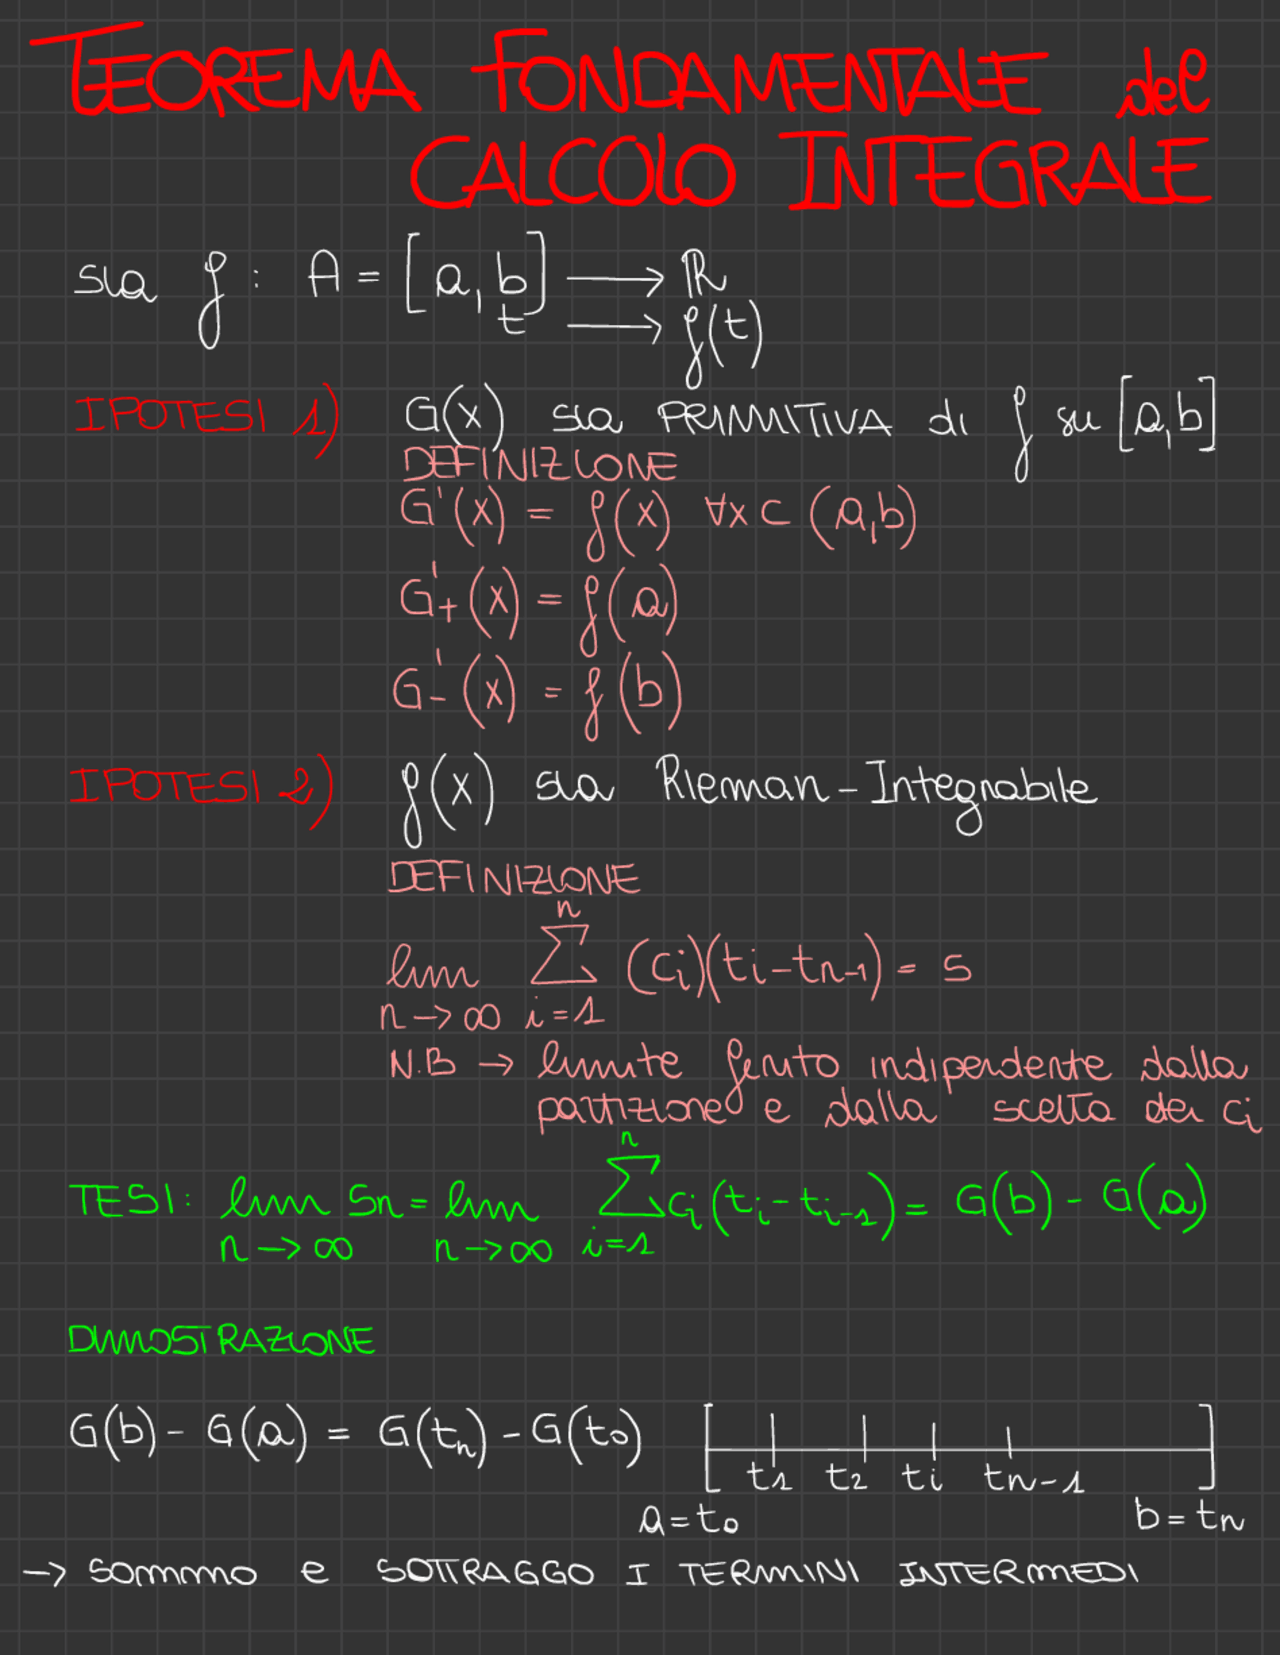 TEOREMA FONDAMENTALE del
CALCOLO INTEGRALE
sia f: A = [a,b] ⟶ ℝ
t ⟶ f(t)
IPOTESI 1) G(x) sia PRIMITIVA di f su [a,b]
DEFINIZIONE
G'(x) = f(x) ∀x ⊂ (a,b)
G'₊(x) = f(a)
G'₋(x) = f(b)
IPOTESI 2) f(x) sia Rieman-Integrabile
DEFINIZIONE
lim n→∞ Σ i=1 n (ci)(ti-tn-1) = s
N.B → limite finito indipendente dalla
partizione e dalla scelta dei ci
TESI: lim n→∞ Sn = lim n→∞ Σ i=1 n ci(ti-ti-1) = G(b) - G(a)
DIMOSTRAZIONE
G(b) - G(a) = G(tn) - G(t0)
t1 t2 ti tn-1
a=t0 b=tn
→ sommo e SOTTRAGGO I TERMINI INTERMEDI